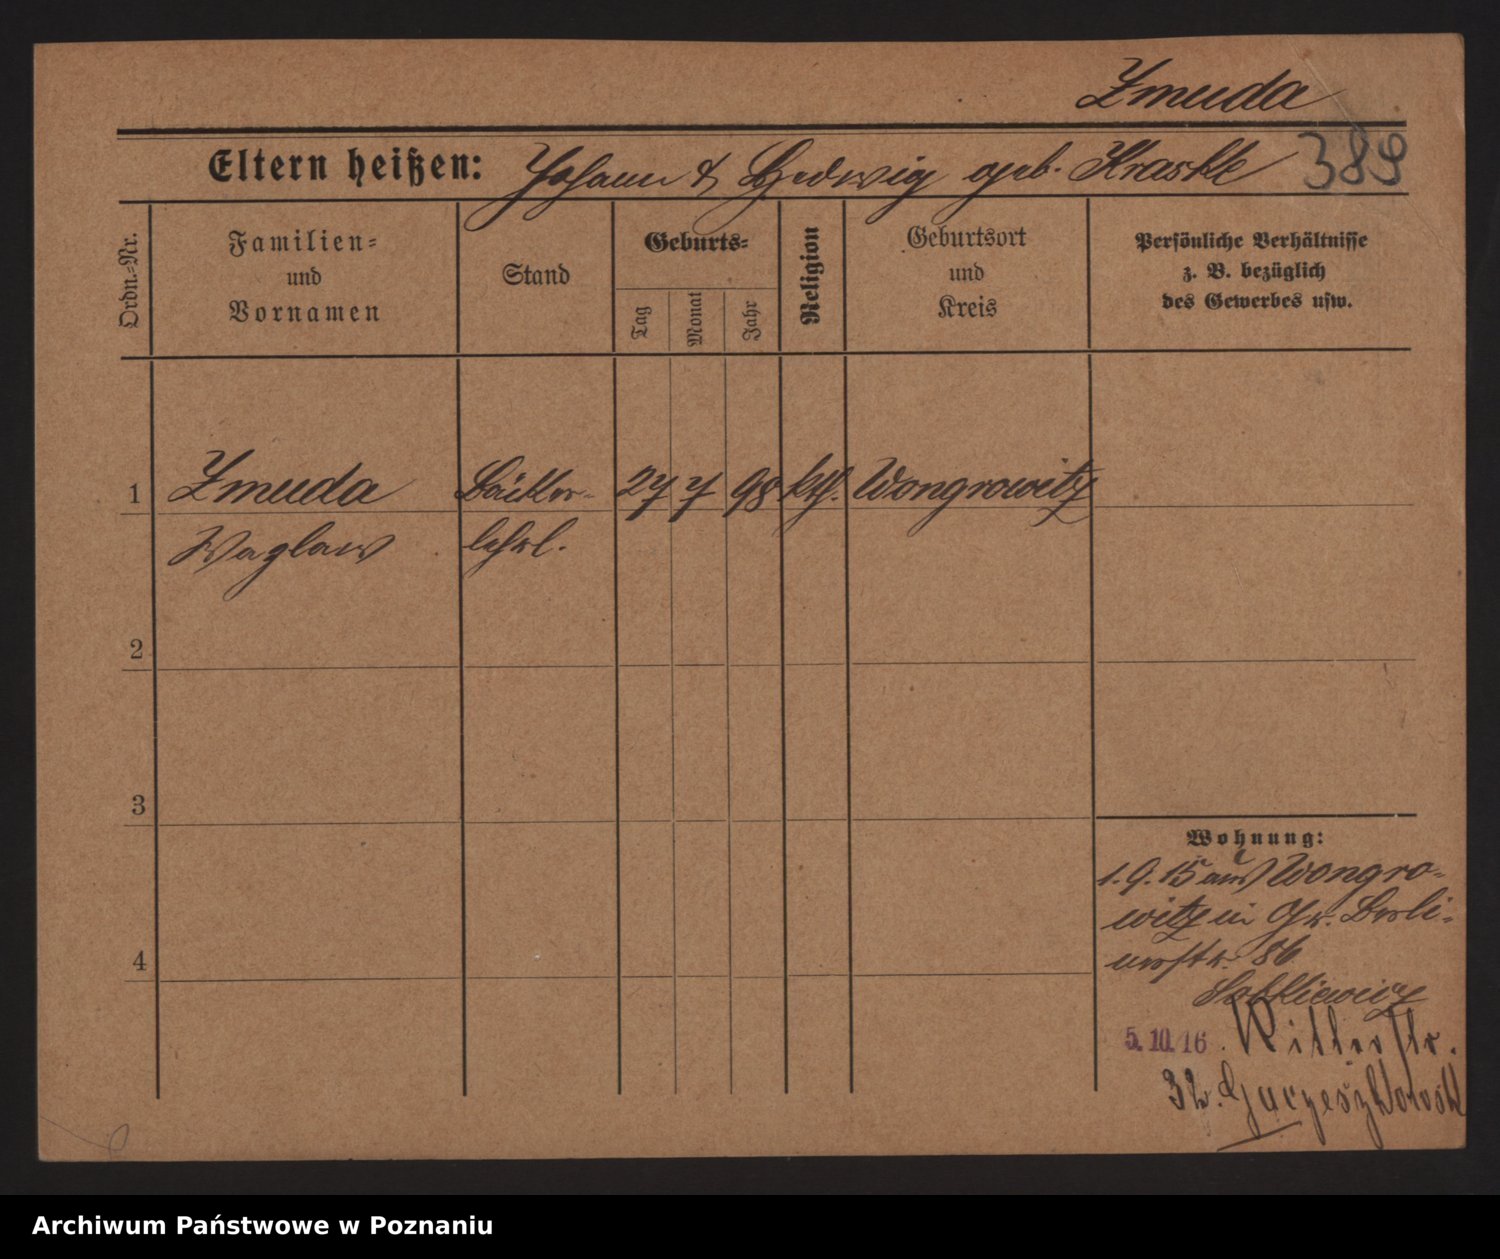 Zmuda
Eltern heißen: Johann & Hedwig geb. Kraske 389
Ordn.=Nr.
Familien=
und
Vornamen
Stand
Geburts=
Tag
Monat
Jahr
Religion
Geburtsort
und
Kreis
Persönliche Verhältnisse
z. B. bezüglich
des Gewerbes usw.
1 Zmuda Bäcker- 27 7 98 kth. Wongrowitz
Waglaw lehrl.
2
3
4
Wohnung:
1.9.15 aus Wongro-
witz in Gr. Berli-
nerstr. 86
5.10.16. Ritterstr.
32.
Archiwum Państwowe w Poznaniu